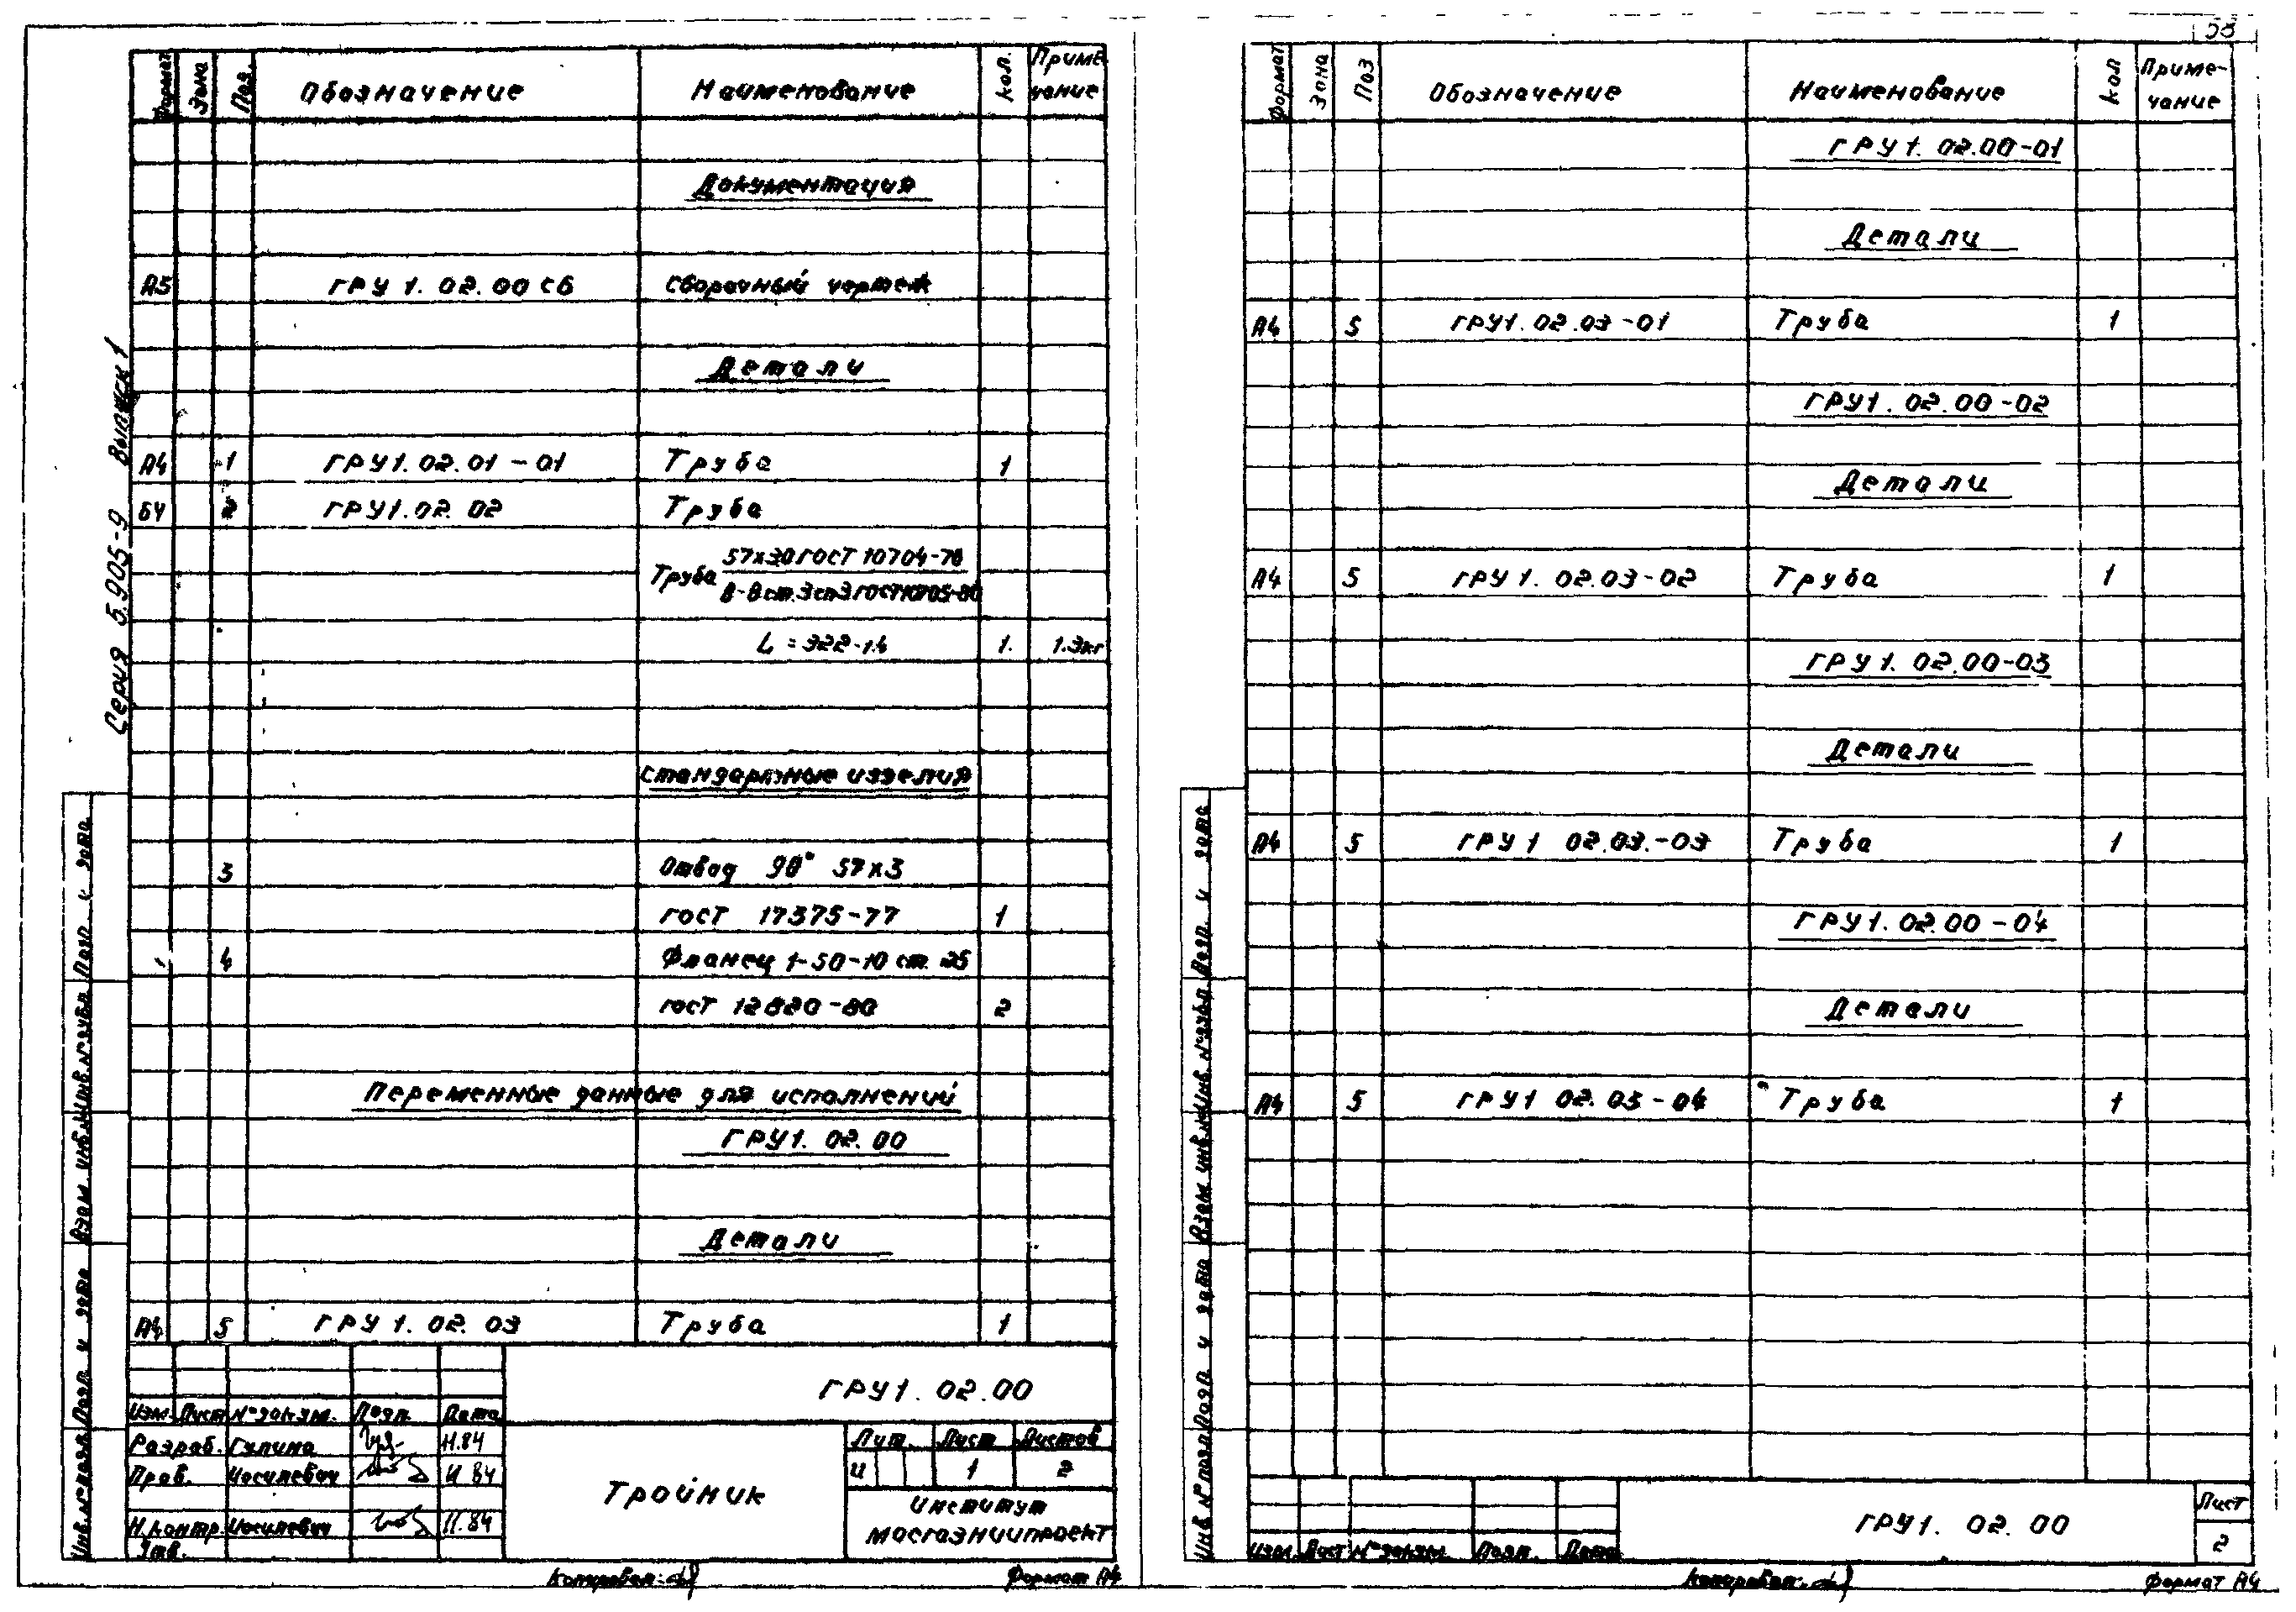 Серия 5.905-9 Выпуск 1
Формат Зона Поз. Обозначение Наименование Кол. Приме-
чание
Документация
А3 ГРУ 1.02.00 СБ Сборочный чертеж
Детали
А4 1 ГРУ1.02.01-01 Труба 1
БЧ 2 ГРУ1.02.02 Труба
57х3.0 ГОСТ 10704-76
Труба
В-Вст.3сп3 ГОСТ 10705-80
L = 322-1.4 1. 1.3кг
Стандартные изделия
3 Отвод 90° 57х3
ГОСТ 17375-77 1
4 Фланец 1-50-10 ст. 25
ГОСТ 12820-80 2
Переменные данные для исполнений
ГРУ1.02.00
Детали
А4 5 ГРУ 1.02.03 Труба 1
ГРУ1.02.00
Изм. Лист № докум. Подп. Дата
Разраб. Гулина 11.84
Пров. Иосилевич 11 84
Н.контр. Иосилевич 11.84
Утв.
Тройник
Лит. Лист Листов
И 1 2
Институт
МосгазНИИпроект
Копировал:
Формат А4
Инв. № подл. Подп. и дата Взам. инв. № Инв. № дубл. Подп. и дата
Формат Зона Поз Обозначение Наименование Кол Приме-
чание
ГРУ 1.02.00-01
Детали
А4 5 ГРУ1.02.03-01 Труба 1
ГРУ1.02.00-02
Детали
А4 5 ГРУ 1.02.03-02 Труба 1
ГРУ 1.02.00-03
Детали
А4 5 ГРУ 1 02.03.-03 Труба 1
ГРУ1.02.00-04
Детали
А4 5 ГРУ 1 02.03-04 Труба 1
Изм. Лист № докум. Подп. Дата
ГРУ1.02.00
Лист
2
Копировал:
Формат А4
Инв № подл Подп и дата Взам инв. № Инв. № дубл. Подп. и дата